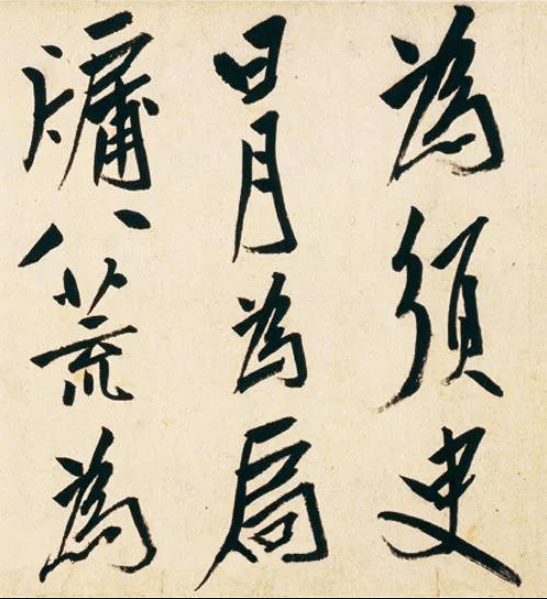 為須臾
日月為扃
牖八荒為